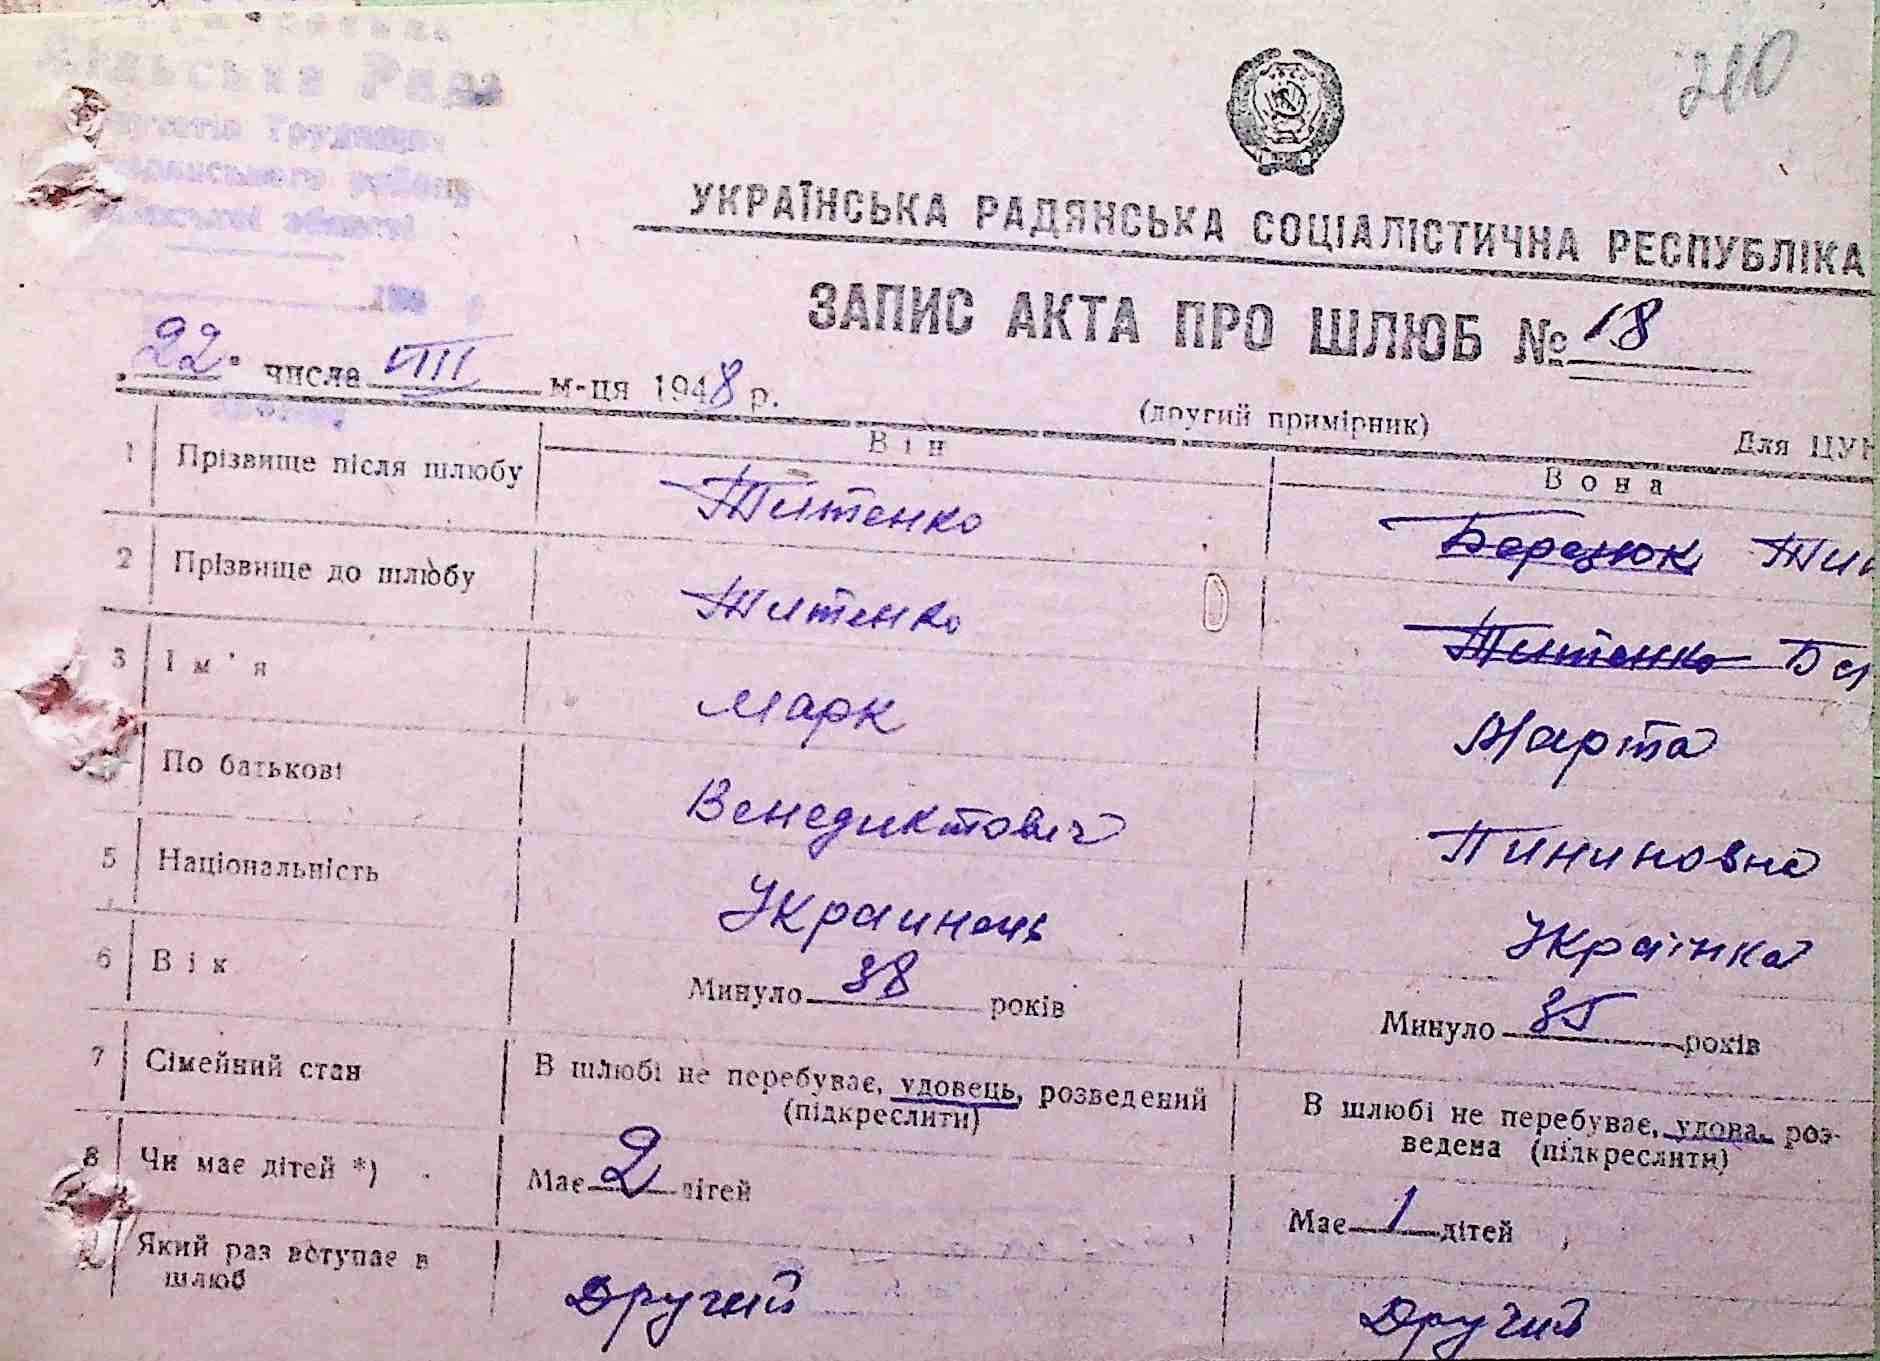 210
Рада
району
області
УКРАЇНСЬКА РАДЯНСЬКА СОЦІАЛІСТИЧНА РЕСПУБЛІКА
ЗАПИС АКТА ПРО ШЛЮБ № 18
22 числа VIII м-ця 1948 р.
(другий примірник)
Для
Він Вона
1 Прізвище після шлюбу Титенко Березюк
2 Прізвище до шлюбу Титенко Титенко
3 Ім'я Марк Марта
По батькові Венедиктович Пининовна
5 Національність Украинець Українка
6 Вік Минуло 38 років Минуло 35 років
7 Сімейний стан В шлюбі не перебуває, удовець, розведений (підкреслити) В шлюбі не перебуває, удова, роз-
ведена (підкреслити)
8 Чи має дітей *) Має 2 дітей Має 1 дітей
Який раз вступає в
шлюб Другий Другий